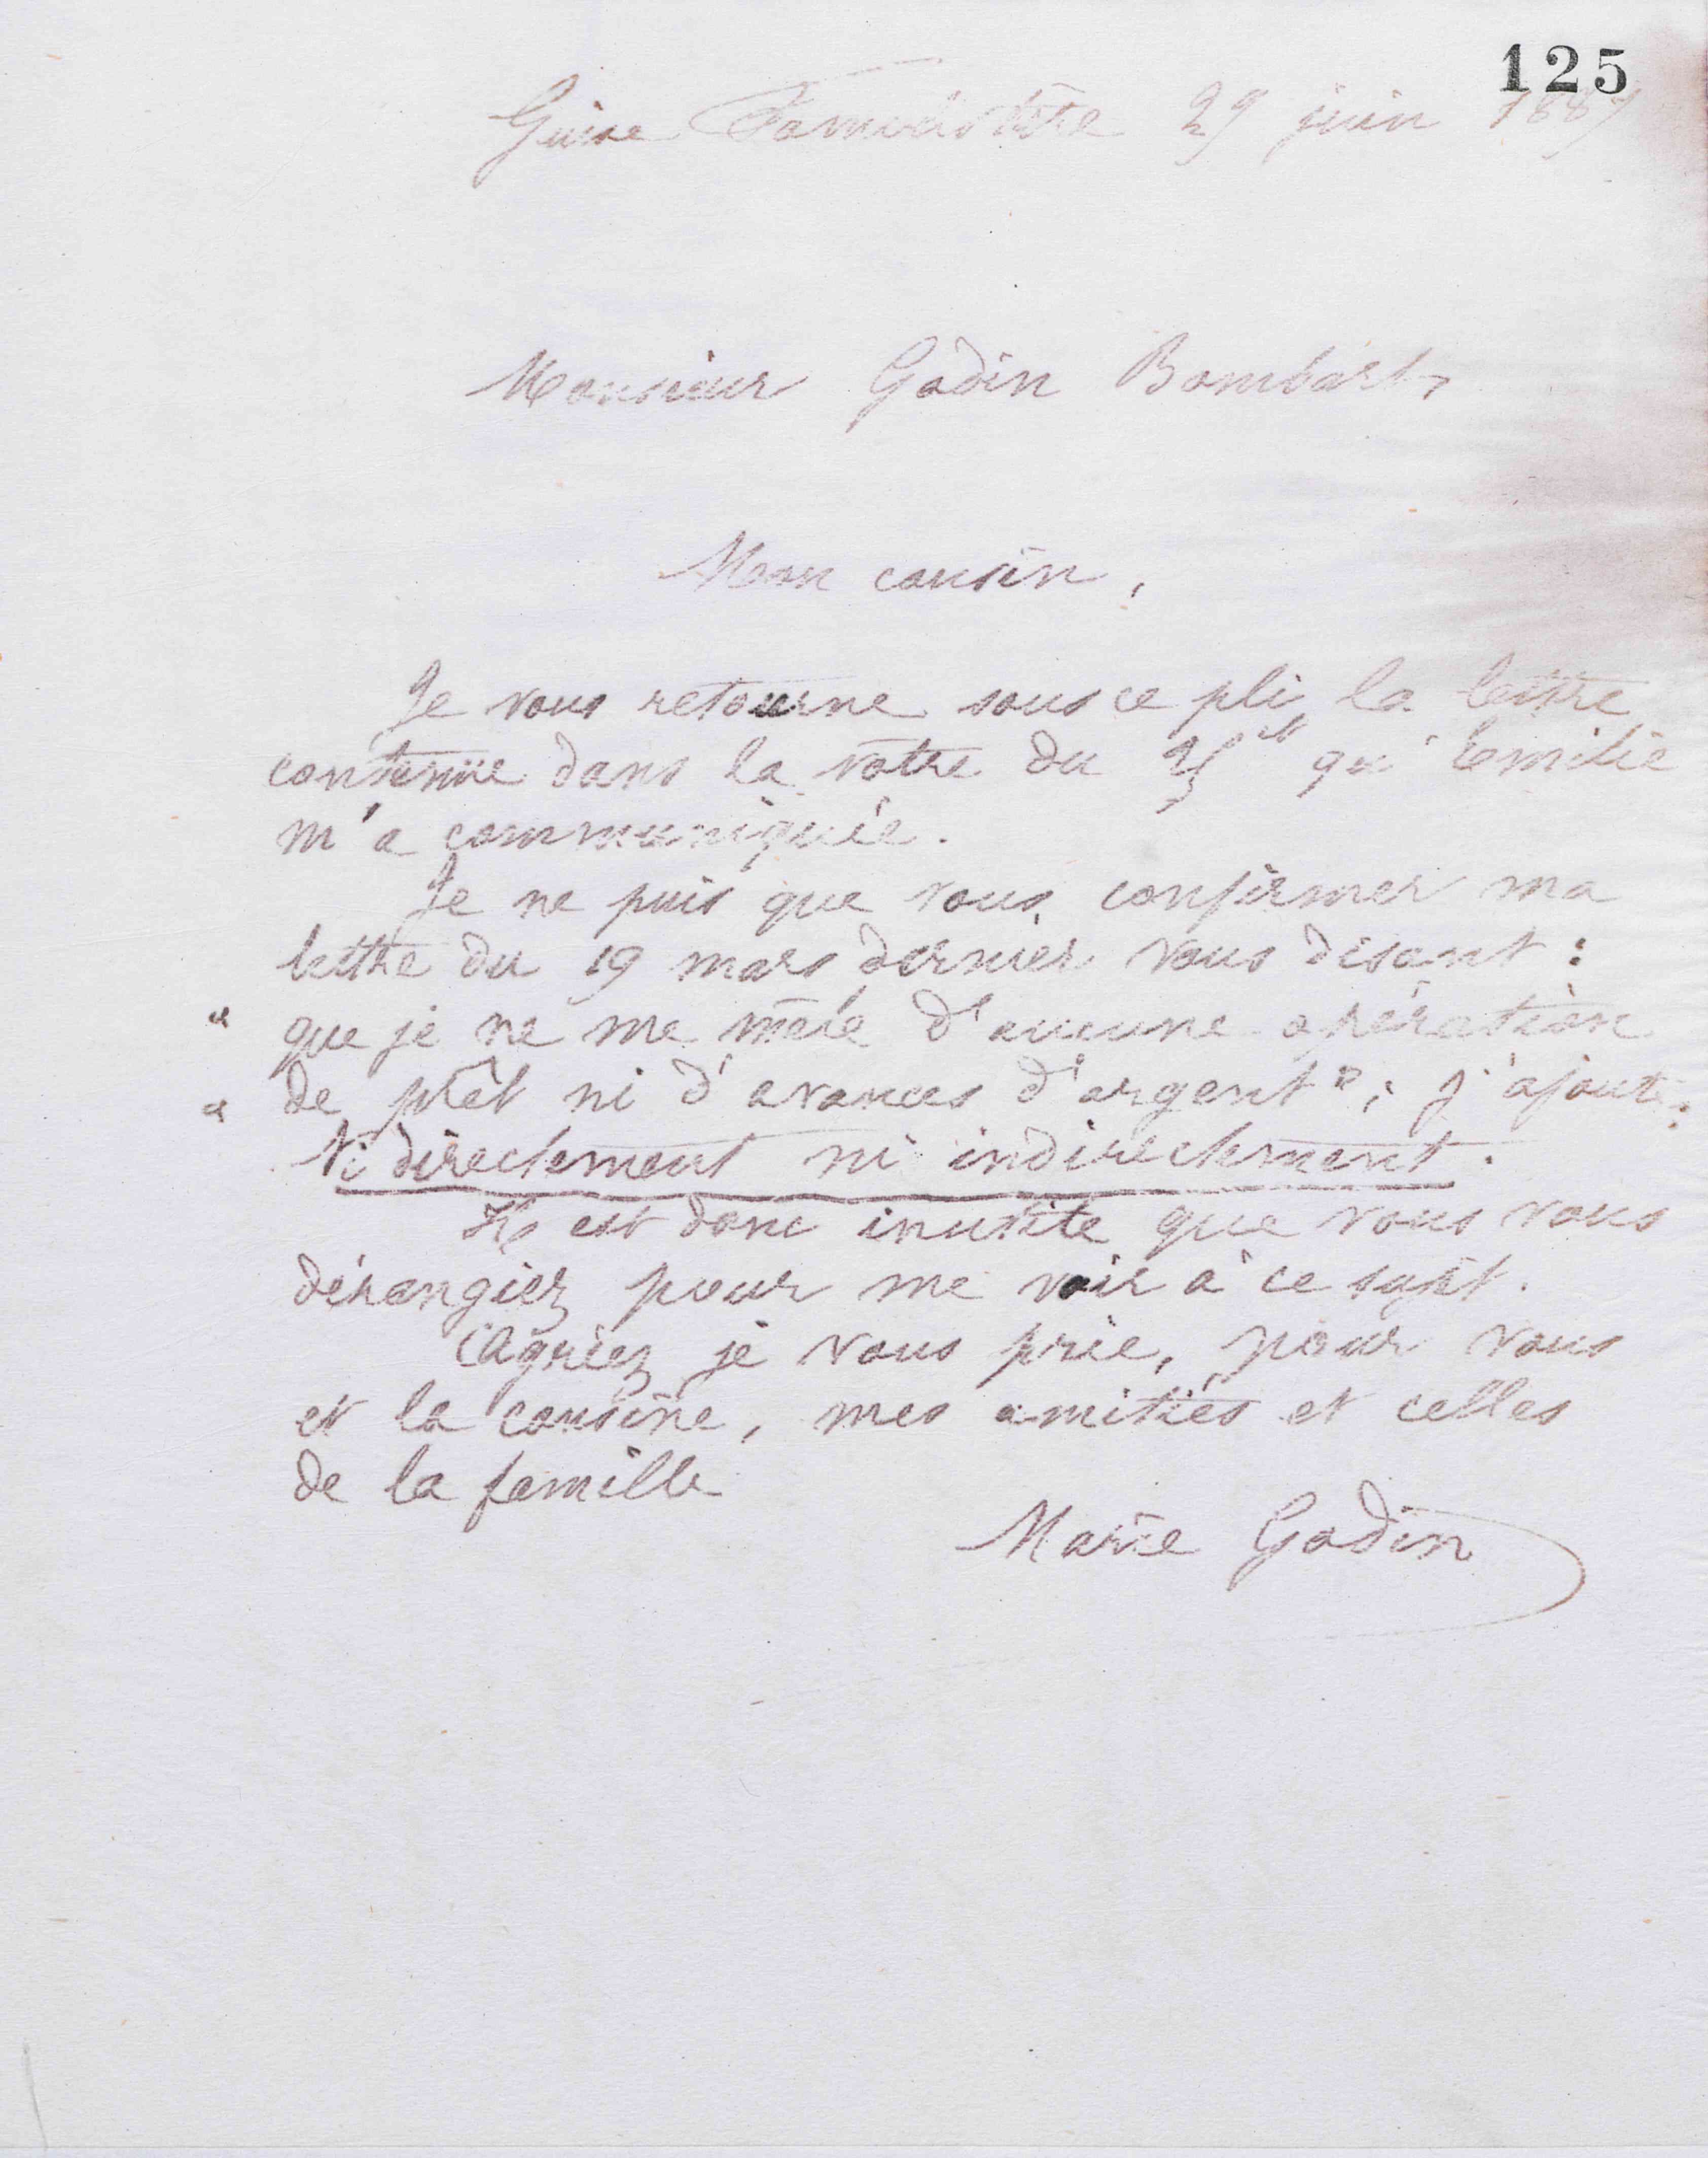 125
Guise Familistère 29 juin 1889
Monsieur Godin Bombart,
Mon cousin,
Je vous retourne sous ce pli la lettre
contenue dans la vôtre du ct qu'Emilie
m'a communiquée.
Je ne puis que vous confirmer ma
lettre du 19 mars dernier vous disant :
" que je ne me mêle d'aucune opération
" de prêt ni d'avances d'argent" ; j'ajoute :
Ni directement ni indirectement.
Il est donc inutile que vous vous
dérangiez pour me voir à ce sujet.
Agréez je vous prie, pour vous
et la cousine, mes amitiés et celles
de la famille
Marie Godin